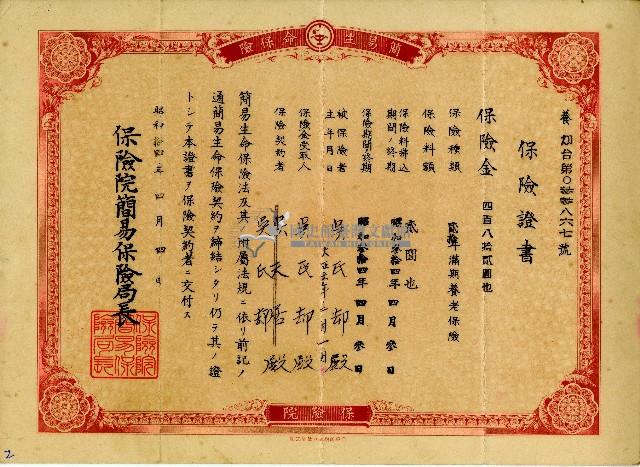 簡易生命保險
養加台第〇拾拾八六七號
保險證書
保險金 四百八拾貳圓也
保險種類 貳拾年滿期養老保險
保險料額 貳圓也
保險料拂込期間ノ終期 昭和參拾四年四月參日
保險期間ノ終期 昭和參拾四年四月參日
被保險者 吳氏却殿
生年月日 大正 年二月一日
保險金受取人 吳氏却殿
保險契約者 吳氏却殿
簡易生命保險法及其ノ附屬法規ニ依リ前記ノ
通簡易生命保險契約ヲ締結シタリ仍テ其ノ證
トシテ本證書ヲ保險契約者ニ交付ス
昭和拾四年四月四日
保險院簡易保險局長
保險院簡易保險局長
保險院
國史館臺灣文獻館
TAIWAN HISTORICA
2